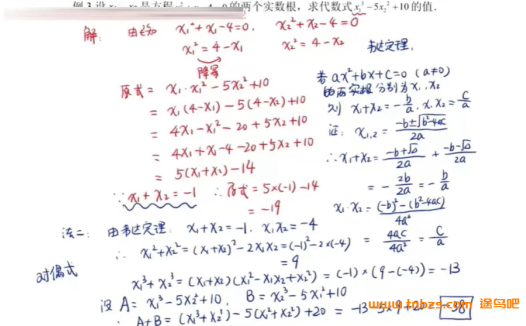 的两个实数根，求代数式x₁³-5x₂²+10的值.
解: 由已知 x₁²+x₁-4=0, x₂²+x₂-4=0
x₁²=4-x₁ x₂²=4-x₂
降幂
原式= x₁·x₁²-5x₂²+10
= x₁(4-x₁)-5(4-x₂)+10
= 4x₁-x₁²-20+5x₂+10
= 4x₁+x₁-4-20+5x₂+10
= 5(x₁+x₂)-14
∵x₁+x₂=-1 ∴原式=5×(-1)-14
=-19
韦达定理,
若ax²+bx+c=0 (a≠0)
的两实根分别为x₁,x₂
则 x₁+x₂=-b/a, x₁x₂=c/a
证: x₁,₂=(-b±√(b²-4ac))/2a
∴x₁+x₂=(-b+√Δ)/2a+(-b-√Δ)/2a
=-2b/2a=-b/a
x₁·x₂=((-b)²-(b²-4ac))/4a²
=4ac/4a²=c/a
法二: 由韦达定理: x₁+x₂=-1, x₁x₂=-4
∴x₁²+x₂²=(x₁+x₂)²-2x₁x₂=(-1)²-2×(-4)
=9
对偶式
x₁³+x₂³=(x₁+x₂)(x₁²-x₁x₂+x₂²)=(-1)×(9-(-4))=-13
设A=x₁³-5x₂²+10, B=x₂³-5x₁²+10
∴A+B=(x₁³+x₂³)-5(x₁²+x₂²)+20=-13-5×9+20=-38
www.tobzs.com 途鸟吧